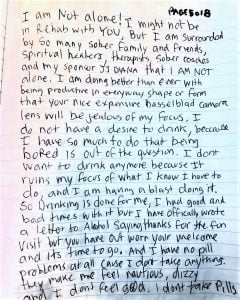 PAGE 5 OF 8
I am Not alone! I might not be
in Rehab with You, But I am Surrounded
by So many sober Family and Friends,
spiritual healers, therapists, Sober coaches
and my sponsor JJ DIANA that I AM NOT
alone. I am doing better than ever with
being productive in everyway shape or form
that your nice expensive hasselblad camera
lens will be jealous of my focus. I
do not have a desire to drink, because
I have so much to do that being
bored is out of the question. I dont
want to drink anymore because it
ruins my focus of what I know I have to
do, and I am having a blast doing it.
So Drinking is done for me, I had good and
bad times with it but I have offically wrote
a Letter to Alcohol Saying thanks for the fun
Visit but you have out worn your welcome
and its time to go. And I have no pill
problems at all cause I dont take anything.
they make me feel nautious, dizzy
and I dont feel good. I dont take Pills